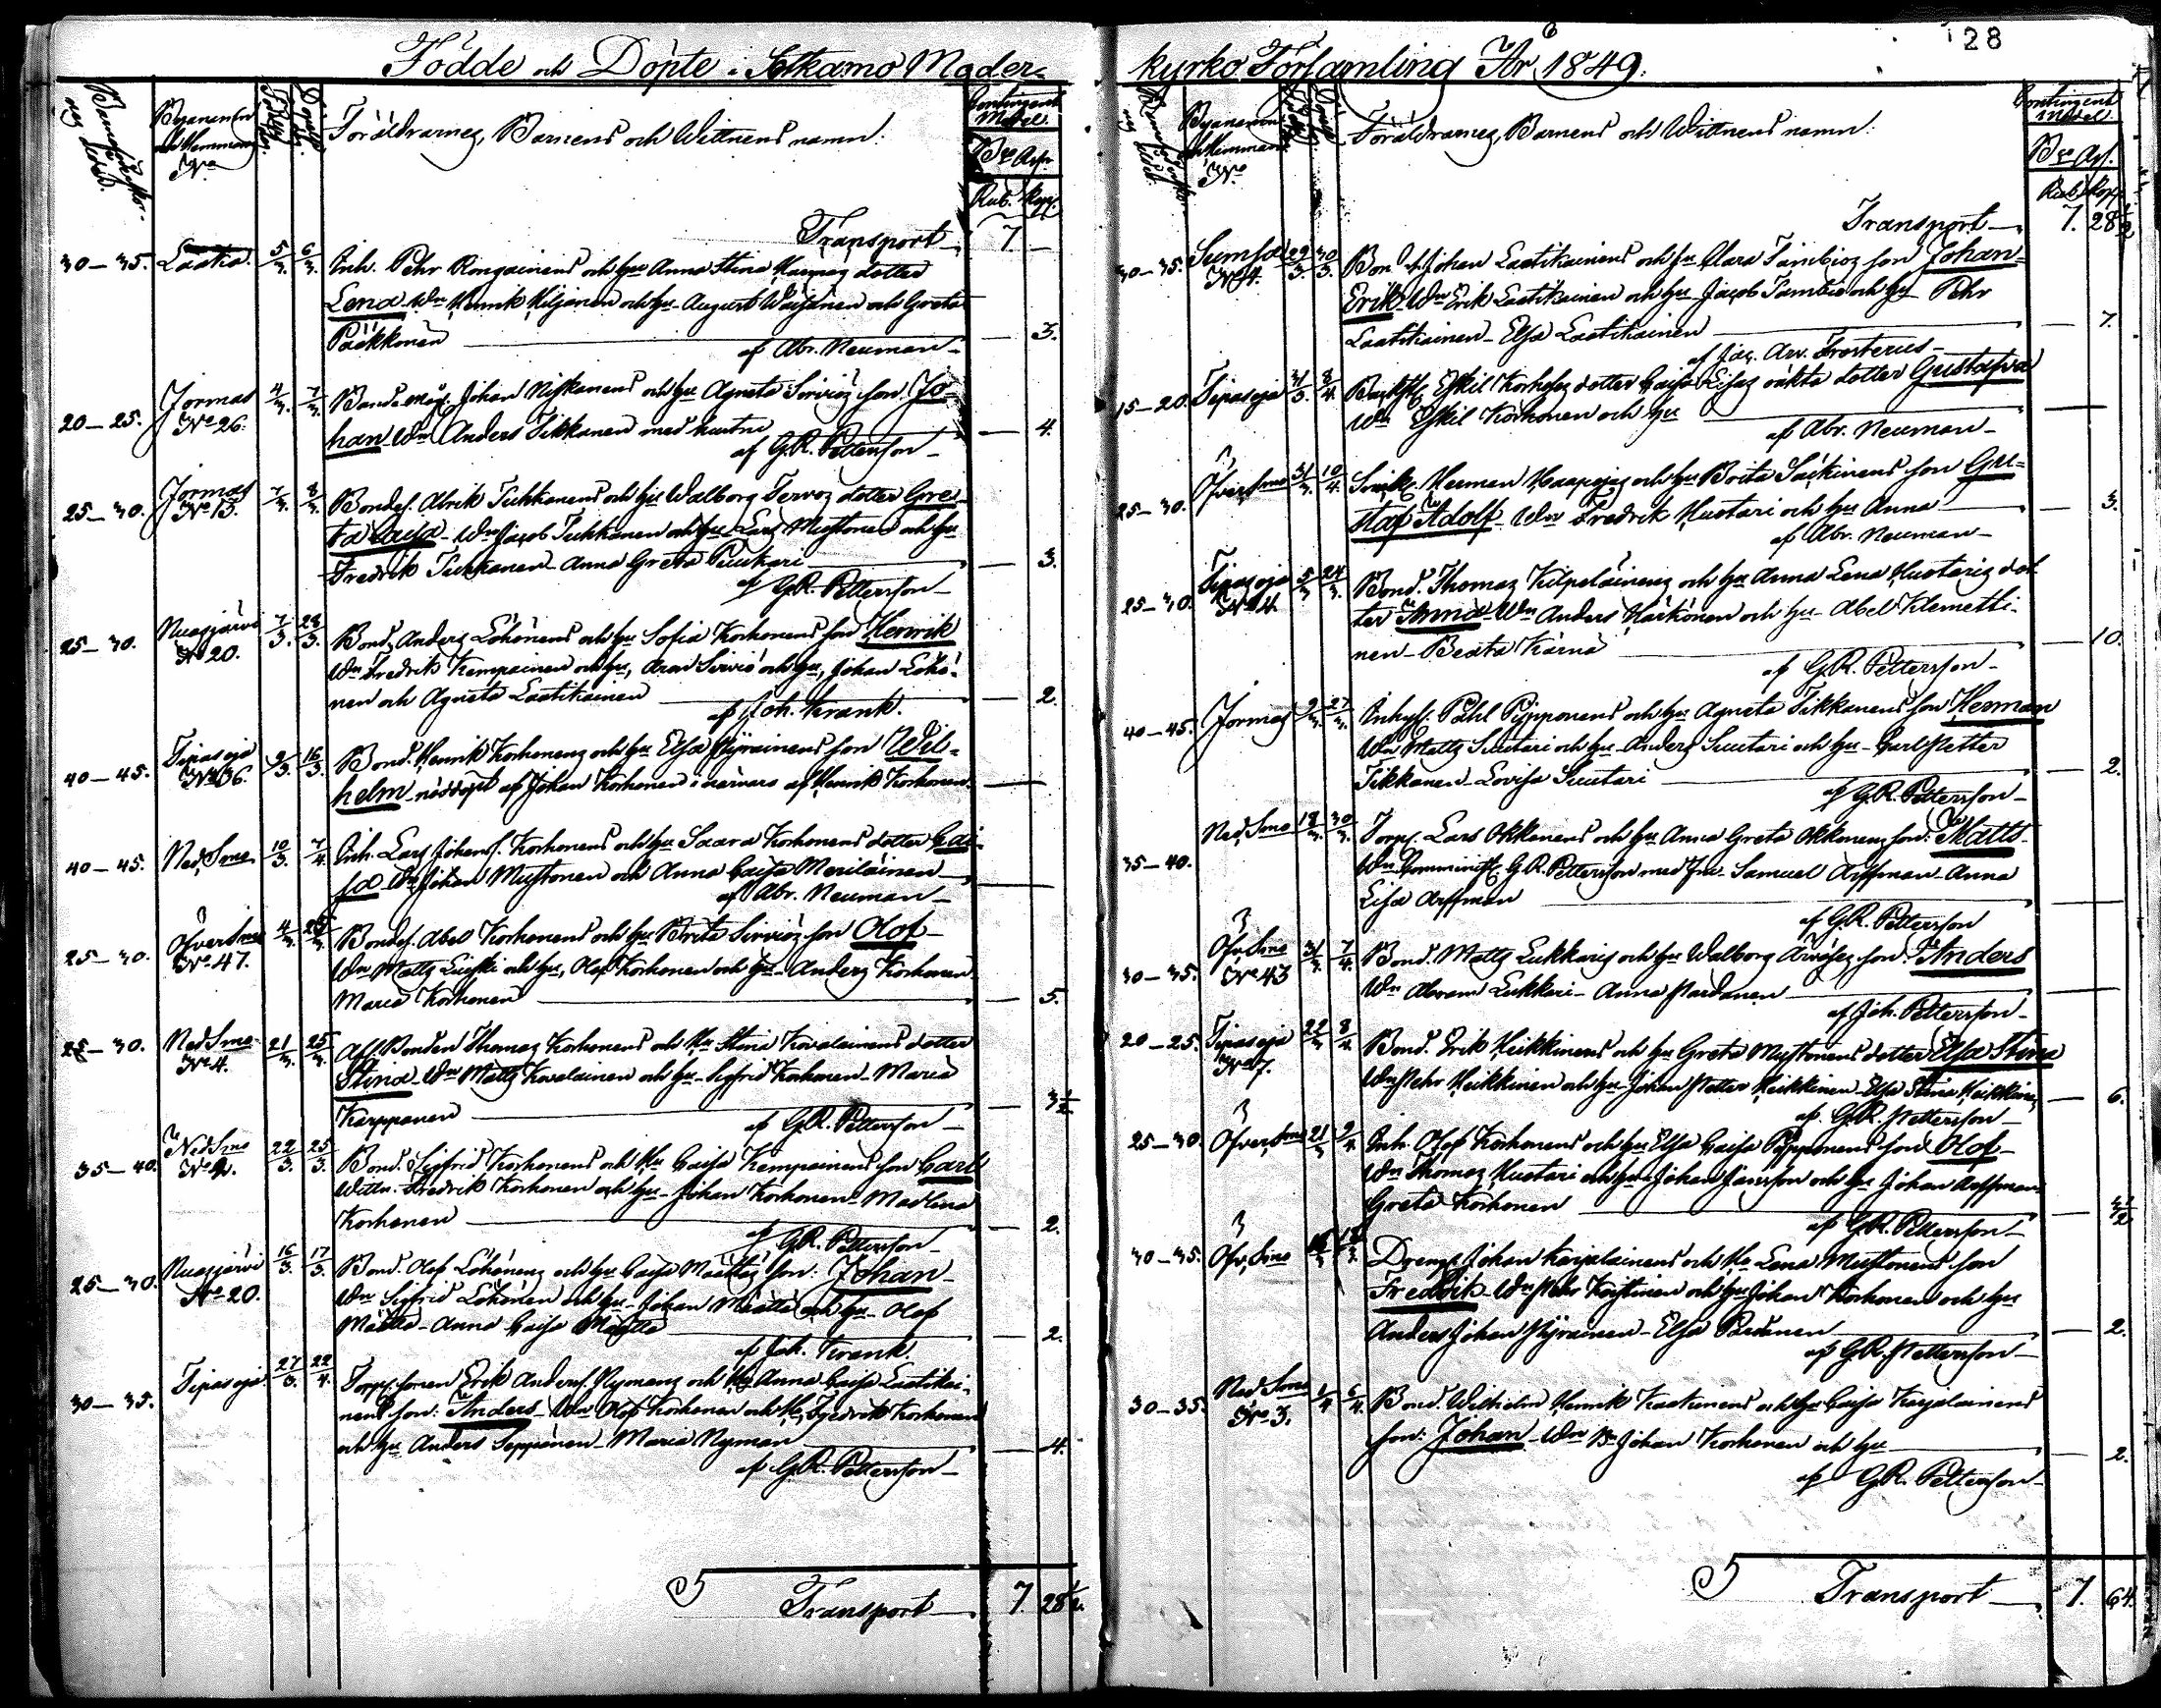 28
Födde och Döpte i Sotkamo Moder=
Barnaföderskornas ålder.
Byanamn och Hemmans No
Födelse
Döpelse
Föräldrarnes, Barnens och Wittnens namn.
Contingent Medel.
Bco Ass.
Rub. Kop.
Transport 7 —
30—35. Laatia. 5/3. 6/3. Inh. Pehr Rongainens och hu Anna Stina dotter
Lena Wn Henrik Kiljanen och hu August Wäisänen och Greta
Pääkkönen — 3.
af Abr. Neuman
20—25. Jormas No 26. 4/3. 7/3. Bonde Johan Niskanens och hu Agneta Serviöz son Jo=
han Wn Anders Tikkanen med hustru — 4.
af G.R. Petterson
25—30. Jormas No 13. 7/3. 8/3. Bondes. Abrik Tuhkanens och hu Walborg Tervoz dotter Gre=
ta Caisa Wn Jacob Tuhkanen och hu Lars Mustonen och hu
Fredrik Tuhkanen Anna Greta Puukari — 3.
af G.R. Petterson
25—30. Nuasjärvi No 20. 7/3. 28/3. Bond. Anders Löhönens och hu Sofia Korhonens son Henrik
Wn Fredrik Kempainen och hu, Serviö och hu, Johan Löhö-
nen och Agneta Laatikainen — 2.
af Joh. Krank.
40—45. Tipasoja No 36. 9/3. 16/3. Bond. Henrik Korhonens och hu Elsa Pyirainens son Wil=
helm nöddöpt af Johan Korhonen i närvaro af Henrik Korhonen.
40—45. Ned. Smo 10/3. 7/4. Inh. Lars Johans. Korhonens och hu Saara Korhonens dotter Cai=
sa Wn Johan Mustonen och Anna Caisa Meriläinen
af Abr. Neuman
25—30. Öfver Smo No 47. 4/3. 25/3. Bondes. Abel Korhonens och hu Brita Serviöz son Olof
Wn Matts och hu, Olof Korhonen och hu Anders Korhonen
Maria Korhonen — 5.
25—30. Ned Smo No 4. 21/3. 25/3. Afl. Bonden Thomas Korhonens och Hu Stina Kovalainens dotter
Stina Wn Matts Kovalainen och hu Sigfrid Korhonen Maria
Karppanen — 3 1/2
af G.R. Petterson
35—40. Ned Smo No 2. 22/3. 25/3. Bond. Sigfrid Korhonens och Hu Caisa Kempainens son Carl
Wittn. Fredrik Korhonen och hu Johan Korhonen Madlina
Korhonen — 2.
af G.R. Petterson
25—30. Nuasjärvi No 20. 16/3. 17/3. Bond. Olof Löhönens och hu Caisa Määttäs son: Johan
Wn Sigfrid Löhönen och hu Johan Määttä och hu Olof
Määttä Anna Caisa Määttä — 2.
af Joh. Krank.
30—35. Tipasoja 27/3. 22/4. Torpssonen Erik Anders. Nymans och Hu Anna Caisa Laatikai-
nens son: Anders Wn Olof Korhonen och Hu, Fredrik Korhonen
och hu Anders Seppänen Maria Nyman — 4.
af G.R. Petterson
Transport 7. 28 1/2.
kyrko Församling År 1849.
Barnaföderskornas ålder.
Byanamn och Hemmans No
Födelse
Döpelse
Föräldrarnes, Barnens och Wittnens namn.
Contingent Medel.
Bco Ass.
Rub. Kop.
Transport 7. 28 1/2
30—35. Sumsa No 4. 29/3. 30/3. Bond. Johan Laatikainens och hu Clara Tambioz son Johan=
Erik Wn Erik Laatikainen och hu Jacob Tambio och hu Pehr
Laatikainen Elsa Laatikainen — 7.
af Jac. Arv. Frosterus
15—20. Tipasoja 31/3. 8/4. Eskil Korhosez dotter Caisa Lisas oäkta dotter Gustafva
Wn Eskil Korhonen och hu
af Abr. Neuman
25—30. Öfver Smo 31/3. 10/4. Herman Haapojas och hu Brita Säskinens son Gu=
staf Adolf Wn Fredrik Huotari och hu Anna — 3.
af Abr. Neuman
25—30. Tipasoja No 4. 5/3. 24/3. Bond. Thomas Kilpeläinens och hu Anna Lena Huotariz dot
ter Anna Wn Anders Härkönen och hu Abel Klemetti-
nen Beata Kärnä — 10.
af G.R. Petterson
40—45. Jormas 9/3. 27/3. Inhys. Påhl Pypponens och hu Agneta Tikkanens son Herman
Wn Matts Suutari och hu Anders Suutari och hu Carl Petter
Tikkanen Lovisa Suutari — 2.
af G.R. Petterson
35—40. Ned. Smo 18/3. 30/3. Torp. Lars Okkonens och hu Anna Greta Okkonens son: Matts
Wn Comminist. G.R. Petterson med Fru Samuel Arffman Anna
Lisa Arffman
af G.R. Petterson
30—35. Öfv. Smo No 43 31/3. 7/4. Bond. Matts Lukkaris och hu Walborg son: Anders
Wn Abram Lukkari Anna Pardanen
af Joh. Petterson
20—25. Tipasoja No 7. 22/3. 8/4. Bond. Erik Heikkinens och hu Greta Mustonens dotter Elsa Stina
Wn Pehr Heikkinen och hu Johan Petter Heikkinen Elsa Stina Heikkinen — 6.
af G.R. Petterson
25—30. Öfver Smo 21/3. 9/4. Inh. Olof Korhonens och hu Elsa Caisa Pypponens son Olof
Wn Thomas Huotari och hu Johan Jansson och hu Johan Arffman
Greta Korhonen — 3 1/2
af G.R. Petterson
30—35. Öfv. Smo Dreng. Johan Karjalainens och Hu Lena Mustonens son
Fredrik Wn Pehr Koistinen och hu Johan Korhonen och hu
Anders Johan Pyirainen Elsa Pardanen — 2.
af G.R. Petterson
30—35. Ned Smo No 3. 1/4. 6/4. Bond. Wilhelm Henrik Kaakinens och hu Caisa Karjalainens
son: Johan Wn Johan Korhonen och hu — 2.
af G.R. Petterson
Transport 7. 64.